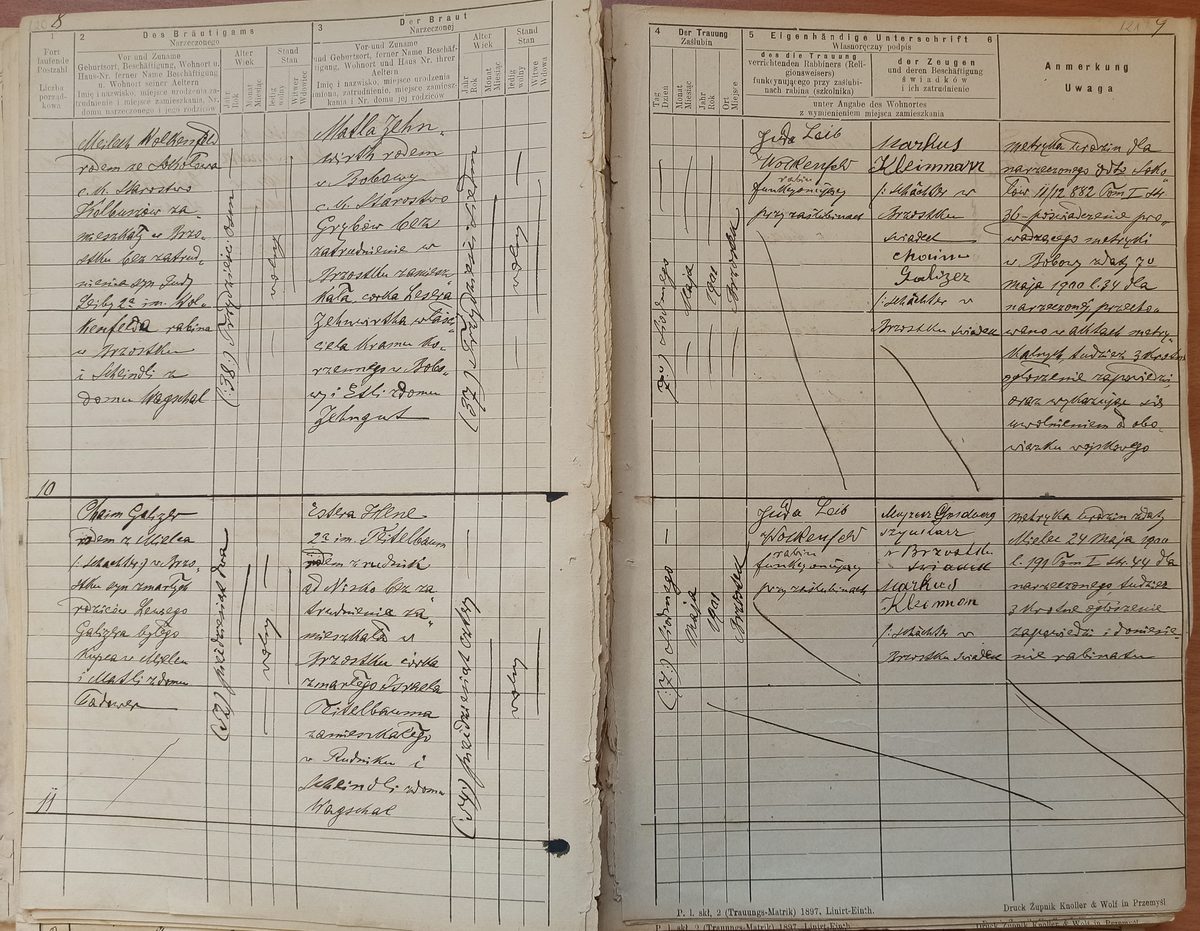 8
1
Fort
laufende
Postzahl
Liczba
porząd-
kowa
2 Des Bräutigams
Narzeczonego
Vor und Zuname
Geburtsort, ferner Name Beschäftigung, Wohnort u.
Haus-Nr. ferner Name Beschäftigung
u. Wohnort seiner Aeltern
Imię i nazwisko, miejsce urodzenia za-
trudnienie i miejsce zamieszkania, Nr.
domu narzeczonego i jego rodziców
Alter
Wiek
Jahr
Rok
Monat
Miesiąc
Stand
Stan
ledig
wolny
Witwer
Wdowiec
3 Der Braut
Narzeczonej
Vor-und Zuname
und Geburtsort, ferner Name Beschäf-
tigung, Wohnort und Haus Nr. ihrer
Aeltern
Imię i nazwisko, miejsce urodzenia
miona, zatrudnienie, miejsce zamiesz-
kania i Nr. domu jej rodziców
Alter
Wiek
Jahr
Rok
Monat
Miesiąc
Stand
Stan
ledig
wolny
Witwe
Wdowa
Mejlech Wolkenfeld
rodem ze Sokołowa
c.k. Starostwo
Kolbuszów za-
mieszkały w Brzo-
stku bez zatrud-
nienia syn Judy
Leiby 2a im. Wol-
kenfelda rabina
w Brzostku
i Scheindli z
domu Wagschal
(:38:) Trzydzieści ośm
wolny
Matla Zehn-
wirth rodem
w Bobowy
c.k. Starostwo
Grybów bez
zatrudnienie w
Brzostku zamiesz-
kała, córka Lesera
Zehnwirtha właści-
ciela kramu ko-
rzennego w Bobo-
wy i Estli zdomu
Zehngut
(:37:) Trzydzieści siedm
wolny
10
Chaim Galizer
rodem z Mielca
(:Schächter:) w Brzo-
stku syn zmarłych
rodziców Lewzego
Galizera byłego
Kupca w Mielcu
i Matli zdomu
(52) pięćdziesiąt dwa
wolny
Estera Hene
2a im. Titelbaum
rodem z rudnik
ad Nisko bez za-
trudnienia za-
mieszkała w
Brzostku córka
zmarłego Israela
Titelbauma
zamieszkałego
w Rudniku i
Scheindli zdomu
Wagschal
(:54:) pięćdziesiąt cztery
wolny
11
9
4 Der Trauung
Zaślubin
Tag
Dzień
Monat
Miesiąc
Jahr
Rok
Ort
Miejsce
5 Eigenhändige Unterschrift 6
Własnoręczny podpis
des die Trauung
verrichtenden Rabbiners (Reli-
gionsweisers)
funkcyonującego przy zaślubi-
nach rabina (szkolnika)
der Zeugen
und deren Beschäftigung
świadków
i ich zatrudnienie
unter Angabe des Wohnortes
z wymienieniem miejsca zamieszkania
Anmerkung
Uwaga
7go Siódmego
Maja
1901
Brzostek
Juda Leib
Wolkenfeld
rabin
funkcyonujący
przy zaślubinach
Markus
Kleinman
(: Schächter w
Brzostku
świadek
Chaim
Galizer
(: Schächter w
Brzostku świadek
metryka urodzin dla
narzeczonego ddto Soko-
łów 11/12 882 Tom I str
36 poświadczenie pro-
wadzącego metryki
w Bobowy zdaty 70
maja 1900 l. 34 dla
narzeczonéj, przecho-
wano w aktach metry-
kalnych tudzież 3 krotne
ogłoszenie zapowiedzi,
oraz wykazując się
uwolnieniem od obo-
wiązku wojskowego
(:7:) Siódmego
Maja
1901
Brzostek
Juda Leib
Wolkenfeld
rabin
funkcyonujący
przy zaślubinach
szynkarz
w Brzostku
świadek
Markus
Kleinman
(: Schächter w
Brzostku świadek
metryka urodzin zdaty
Mielec 24 Maja 1900
l. 190 Tom I str. 44 dla
narzeczonego, tudzież
3 krotne ogłoszenie
zapowiedzi i doniesie-
nie rabinatu
P. l. skł. 2 (Trauungs-Matrik) 1897, Linirt-Einth.
Druck Zupnik Knoller & Wolf in Przemyśl
P. l. skł. 2 (Trauungs-Matrik) 1897, Linirt-Einth.
Druck Zupnik Knoller & Wolf in Przemyśl